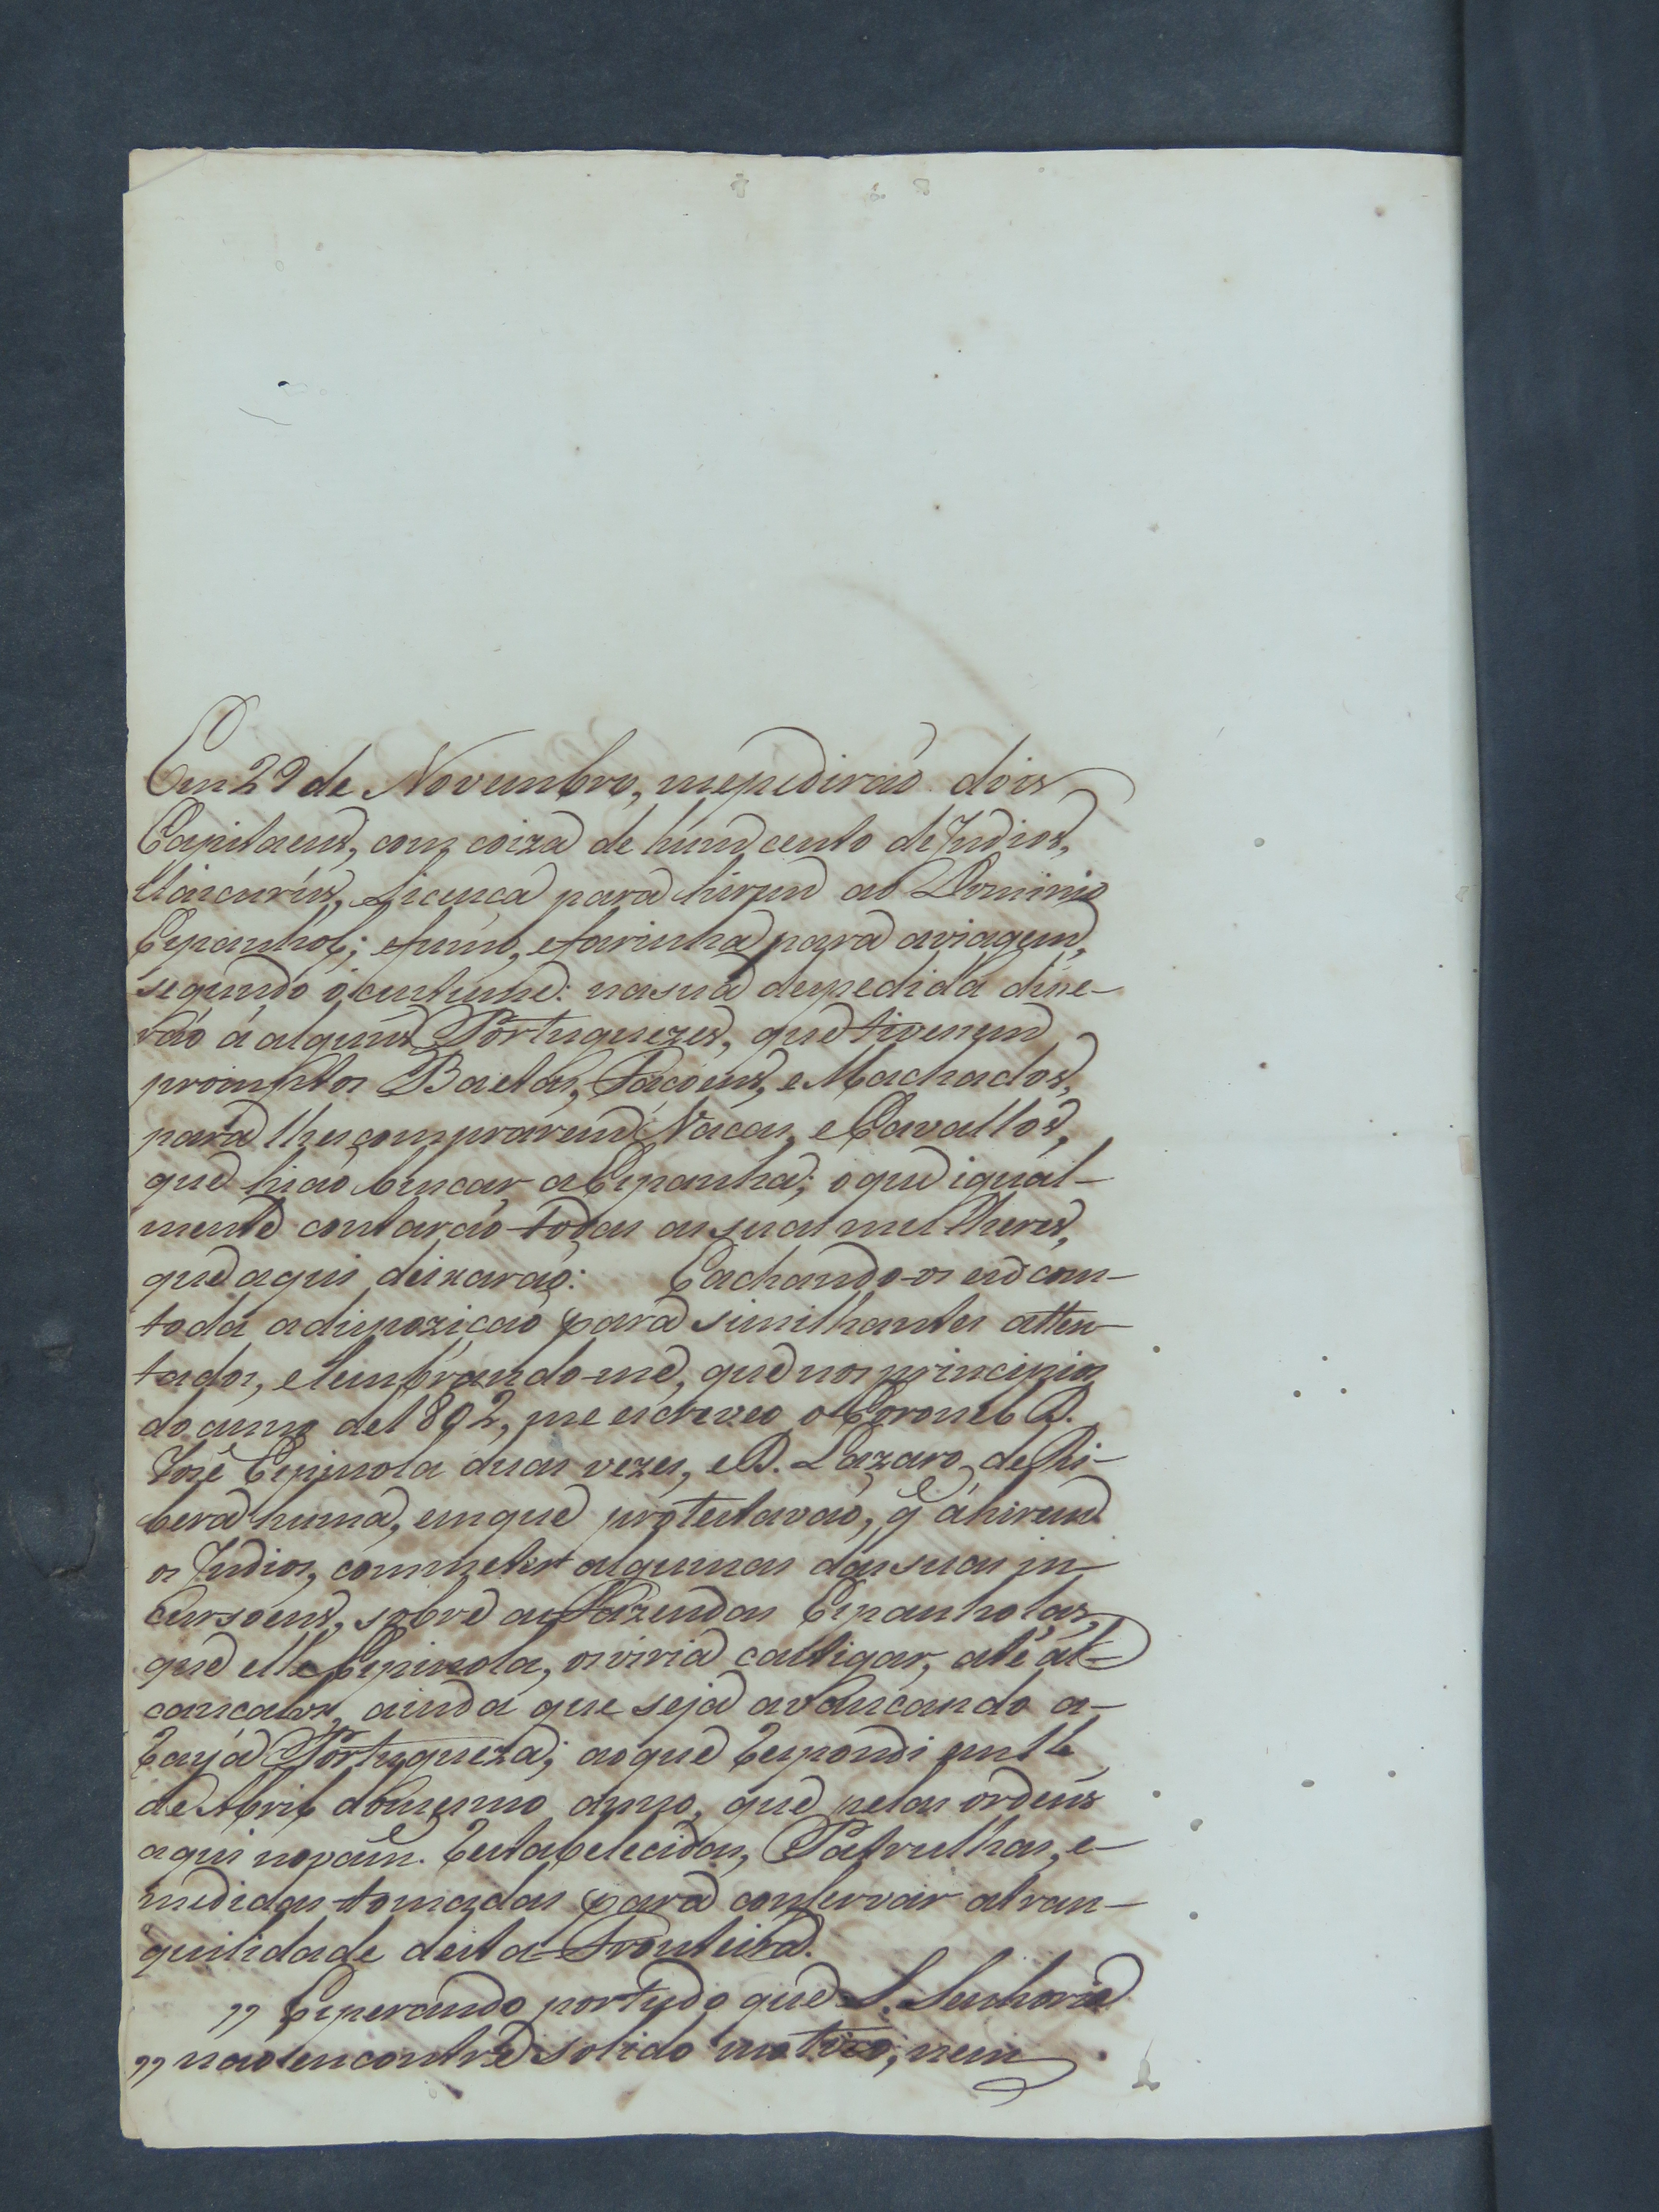 Em 29 de Novembro, mepedirão dois
Capitaens, com coiza de hum cento de Indios,
Uaicurûs, Licença para hirem ao Dominio
Espanhol; efumo, efarinha para aviagem,
segundo o custume: nasua despedida dice-
rão á alguns Portuguezes, que tivessem
promptos Baetas, Facoens, e Machados,
para lhes comprarem Vacas, e Cavallos,
que hião buscar a Espanha; o que igual-
mente contarão todas assuas mulheres,
que aqui deixarão: Eachando-os eu com
toda adispozição para similhantes atten-
tados, elembrando-me, que nos principios
do anno de 1802, me escreveo o Coronel D.
Jozé Espinola duas vezes, e D. Lazaro de Ri-
bera huma, em que protestavão, q̃ ahirem
os Indios, commeter algumas das suas in-
cursoens, sobre as Fazendas Espanholas,
que elle Espinola, os viria castigar, até al-
cançalos, ainda que seja avançando a
Raya Portugueza; ao que Respondi em 16
de Abril do mesmo anno, que pelas ordens
aqui nopaiz Restabelecidas, Patrulhas, e
medidas tomadas para conservar atran-
quilidade desta Fronteira.
" Esperando portudo que S. Senhoria
" não encontre solido motivo, nem